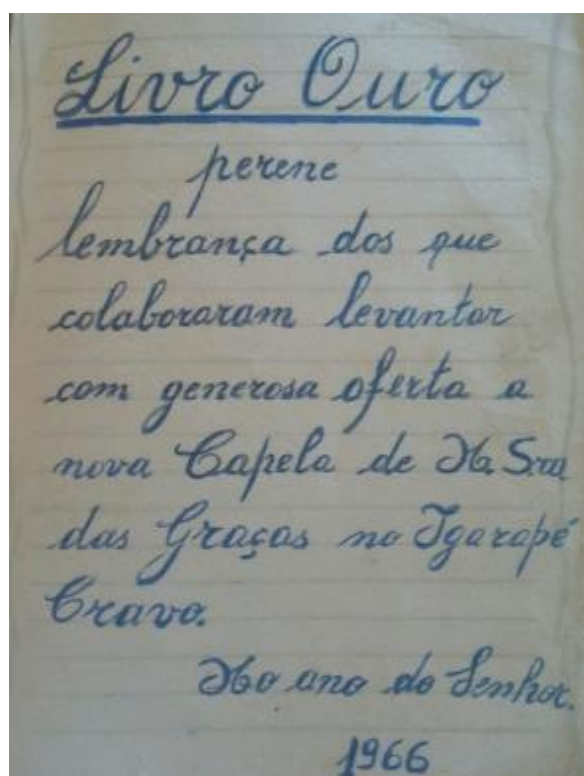 Livro Ouro
perene
lembrança dos que
colaboraram levantar
com generosa oferta a
nova Capela de N. Sra
das Graças no Igarapé
Cravo.
No ano do Senhor.
1966